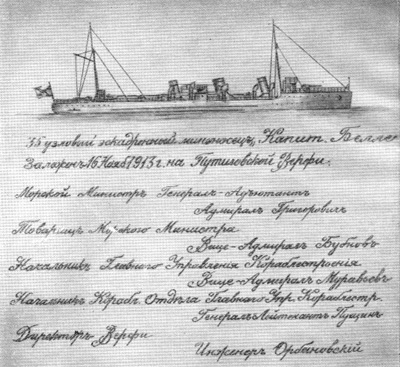 35 узловый эскадренный миноносецъ „Капит. Белле
Заложенъ 16 Нояб. 1913 г. на Путиловской Верфи.
Морской Министръ Генералъ-Адъютантъ
Адмиралъ Григоровичъ
Товарищъ Морского Министра
Вице-Адмиралъ Бубновъ
Начальникъ Главнаго Управленія Кораблестроенія
Вице-Адмиралъ Муравьевъ
Начальникъ Корабл. Отдѣла Главнаго Упр. Кораблестр.
Генералъ-Лейтенантъ Пущинъ
Директоръ Верфи
Инженеръ Орбановскій